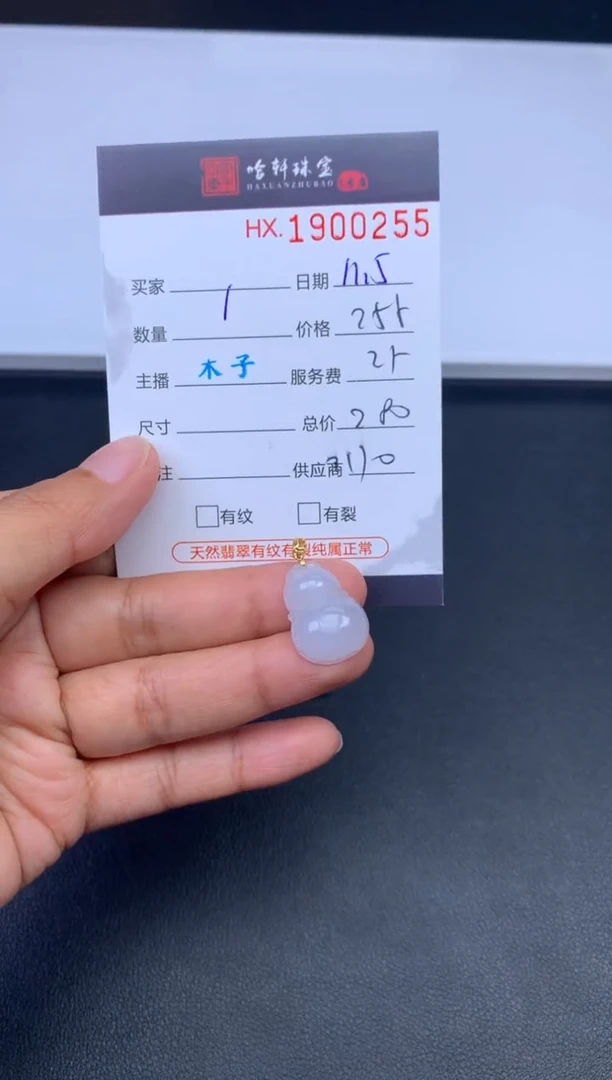 哈轩珠宝
HAXUANZHUBAO
HX.1900255
买家 日期 11.5
数量 1 价格 255
主播 木子 服务费 25
尺寸 总价 280
注 供应商
有纹 有裂
天然翡翠有纹有裂纯属正常